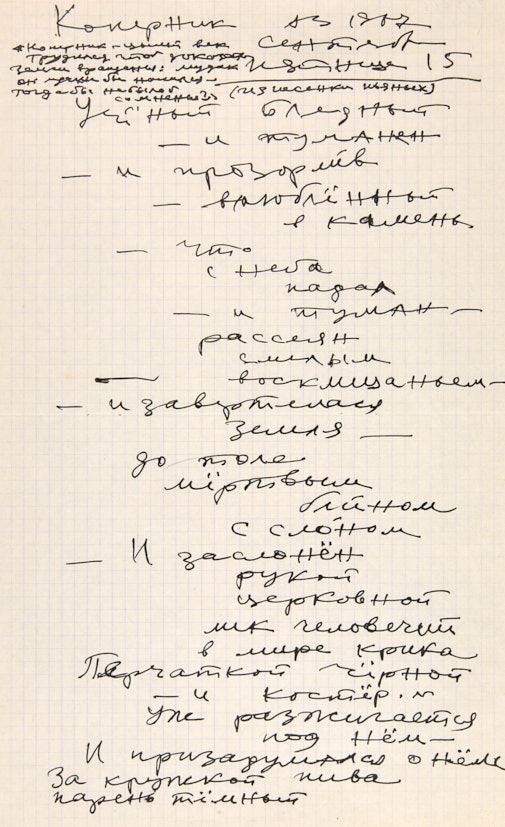 Коперник
*Коперник - целый век
трудился чтоб доказать
земли вращенье: дурак
он лучше бы напился -
тогда бы не было б
сомненья
(из песенки пьяных)
сентября
пятница 15
Учёный бледный
— и туманен
— и прозорлив
— влюблённый
в камень
— что
с неба
падал
— и туман —
рассеян
смелым
восклицаньем —
— и завертелася
земля —
до толе
мёртвым
блином
с слоном
— И заслонён
рукой
церковной
лик человечий
в мире крика
Перчаткой чёрной
— и костёр
уже разжигается
под нём —
И призадумался о нём
За кружкой пива
парень тёмный